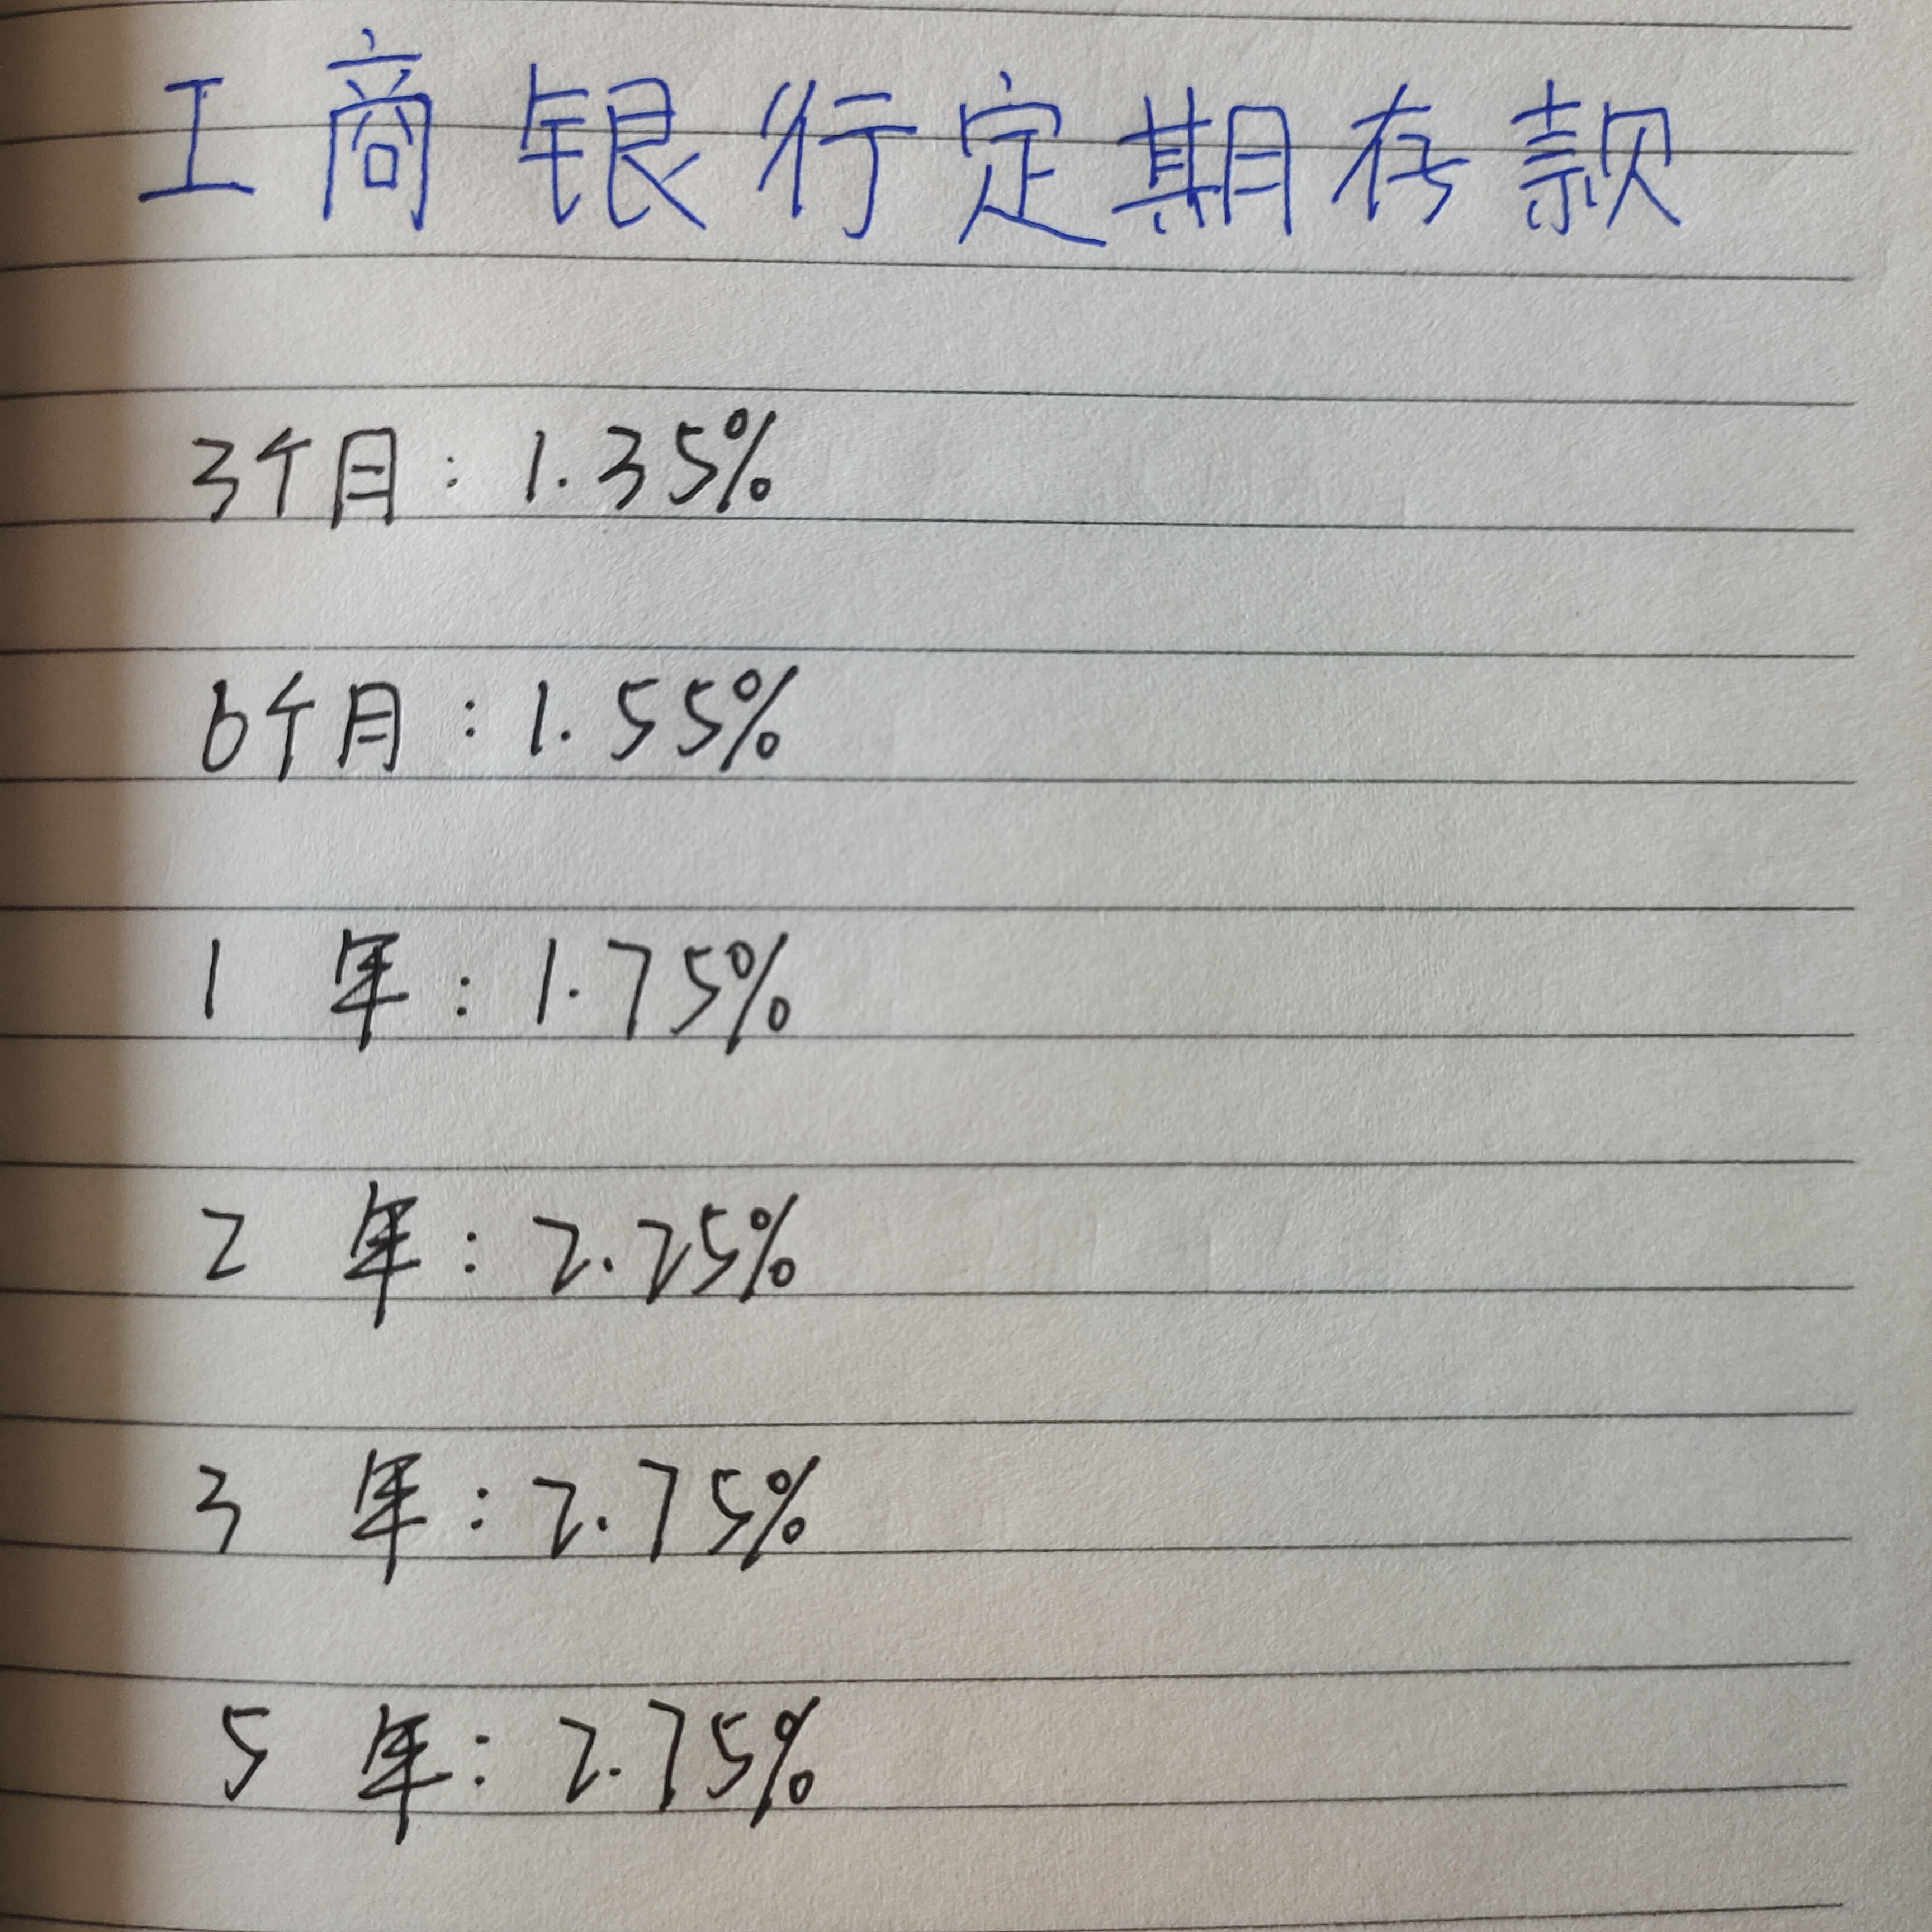 工商银行定期存款
3个月：1.35%
6个月：1.55%
1 年：1.75%
2 年：2.25%
3 年：2.75%
5 年：2.75%